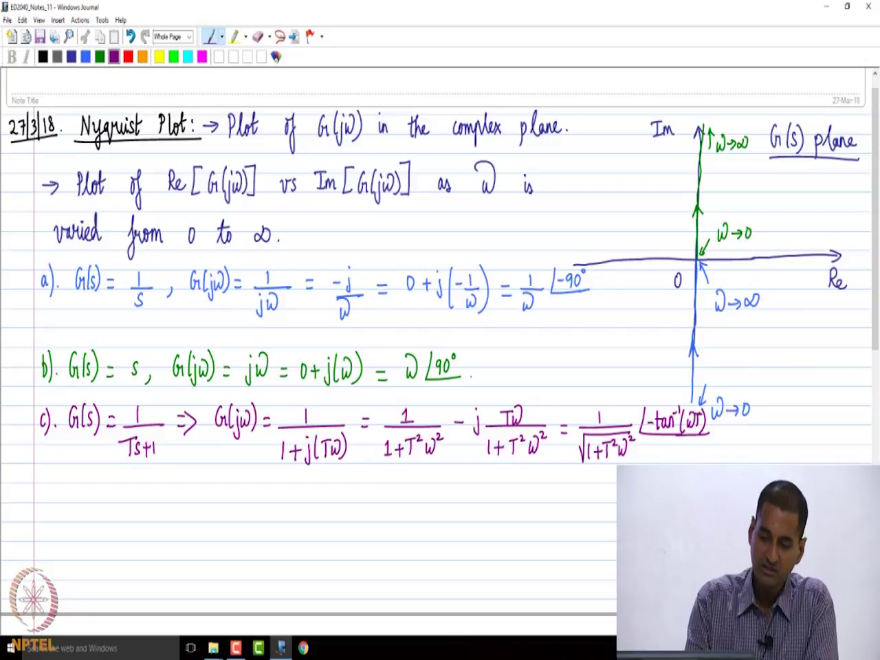 ED2040_Notes_11 - Windows Journal
File Edit View Insert Actions Tools Help
Whole Page
B I
Note Title
27-Mar-18
27/3/18. Nyquist Plot: → Plot of G(jω) in the complex plane.
→ Plot of Re[G(jω)] vs Im[G(jω)] as ω is
varied from 0 to ∞.
a). G(s) = 1/s, G(jω) = 1/jω = -j/ω = 0 + j(-1/ω) = 1/ω ∠-90°
b). G(s) = s, G(jω) = jω = 0 + j(ω) = ω ∠90°.
c). G(s) = 1/(Ts+1) ⇒ G(jω) = 1/(1+j(Tω)) = 1/(1+T²ω²) - j Tω/(1+T²ω²) = 1/√(1+T²ω²) ∠-tan⁻¹(ωT)
Im
ω→∞
G(s) plane
ω→0
0
Re
ω→∞
ω→0
NPTEL
the web and Windows